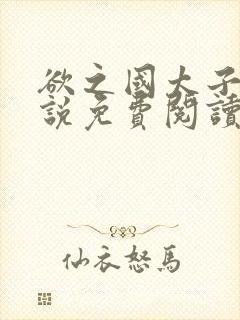 欲之國大子
說免費閱讀
仙衣怒馬